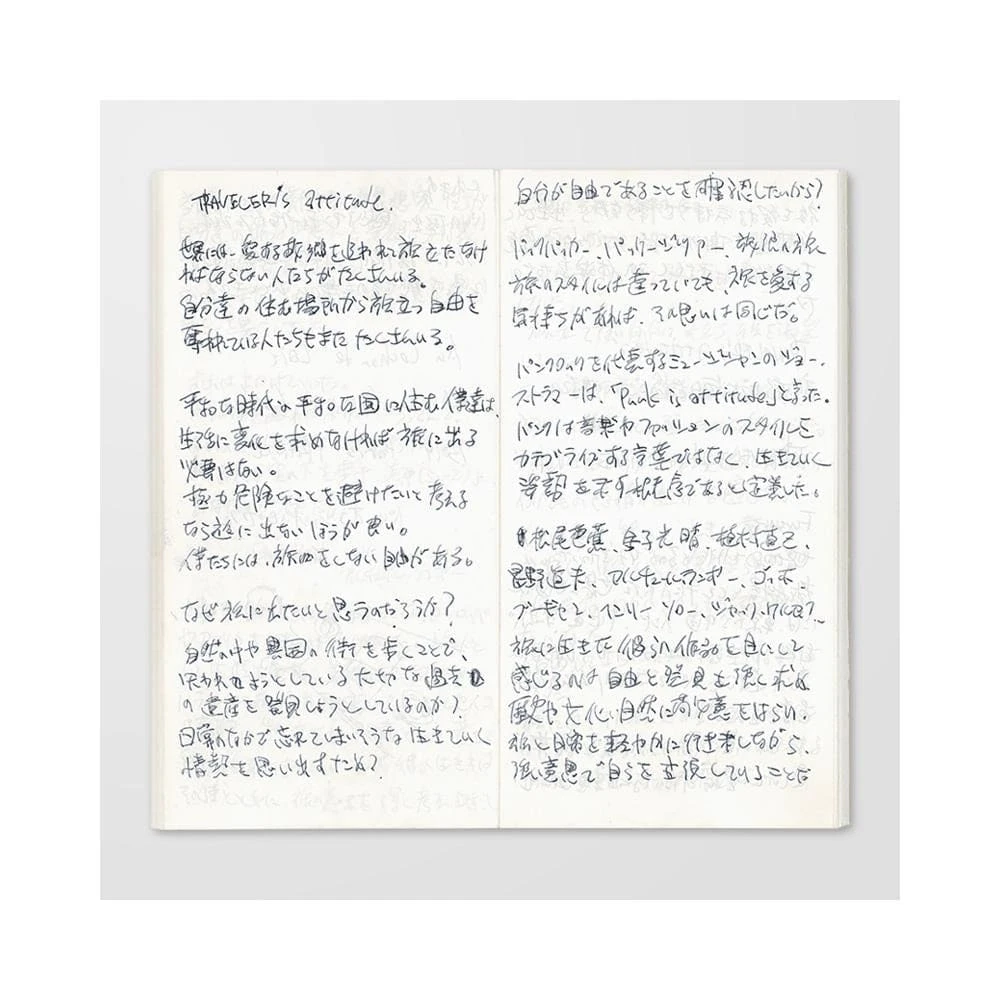 TRAVELER's attitude.
世界には、愛する故郷を追われて旅立たなけ
ればならない人たちがたくさんいる。
自分達の住む場所から旅立つ自由を
奪われている人たちもまたたくさんいる。
平和な時代の平和な国に住む僕達は、
生活に変化を求めなければ旅に出る
必要はない。
極力危険なことを避けたいと考える
なら旅に出ないほうが良い。
僕たちには、旅をしない自由がある。
なぜ旅に出たいと思うのだろうか?
自然の中や異国の街を歩くことで、
失われようとしている大切な過去
の遺産を発見しようとしているのか?
日常のなかで忘れてしまいそうな生きていく
情熱を思い出すため?
自分が自由であることを確認したいから?
バックパッカー、パッケージツアー、放浪の旅
旅のスタイルは違っていても、旅を愛する
気持ちがあれば、その思いは同じだ。
パンクロックを代表するミュージシャンのジョー・
ストラマーは、「Punk is attitude」と言った。
パンクは音楽やファッションのスタイルを
カテゴライズする言葉ではなく、生きていく
姿勢を示す概念であると定義した。
松尾芭蕉、金子光晴、植村直己、
星野道夫、アルチュールランボー、ゴッホ、
ブーゼセン、ヘンリーソロー、ジャックケルアック...
旅に生きた彼らの作品を目にして
感じるのは自由と発見を強く求め
歴史や文化、自然に敬意をはらい、
旅と日常を軽やかに行き来しながら、
強い意思で自らを主張していることだ